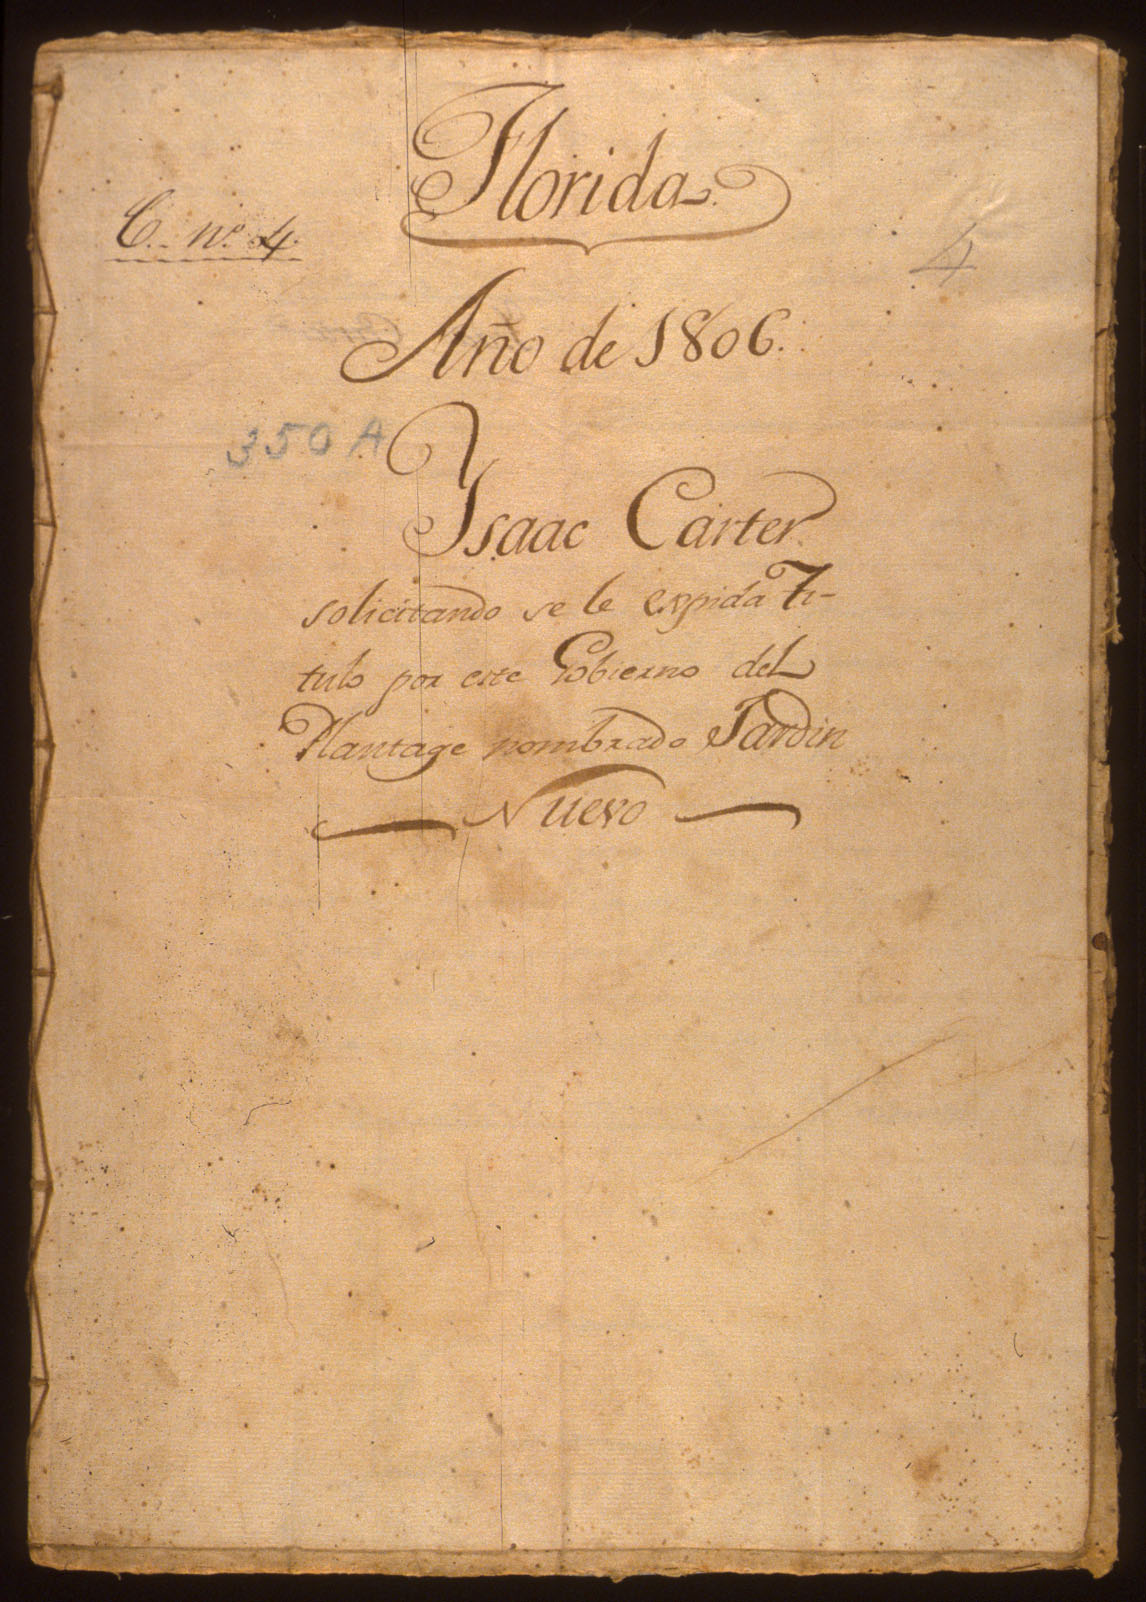 Florida.
C. nº. 4.
4
Año de 1806.
350 A
Ysaac Carter
solicitando se le expida Ti-
tulo por este Gobierno del
Plantage nombrado Jardin
Nuevo